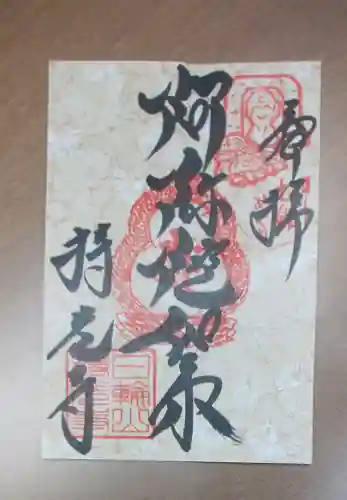 奉拝
阿弥陀如来
持光寺